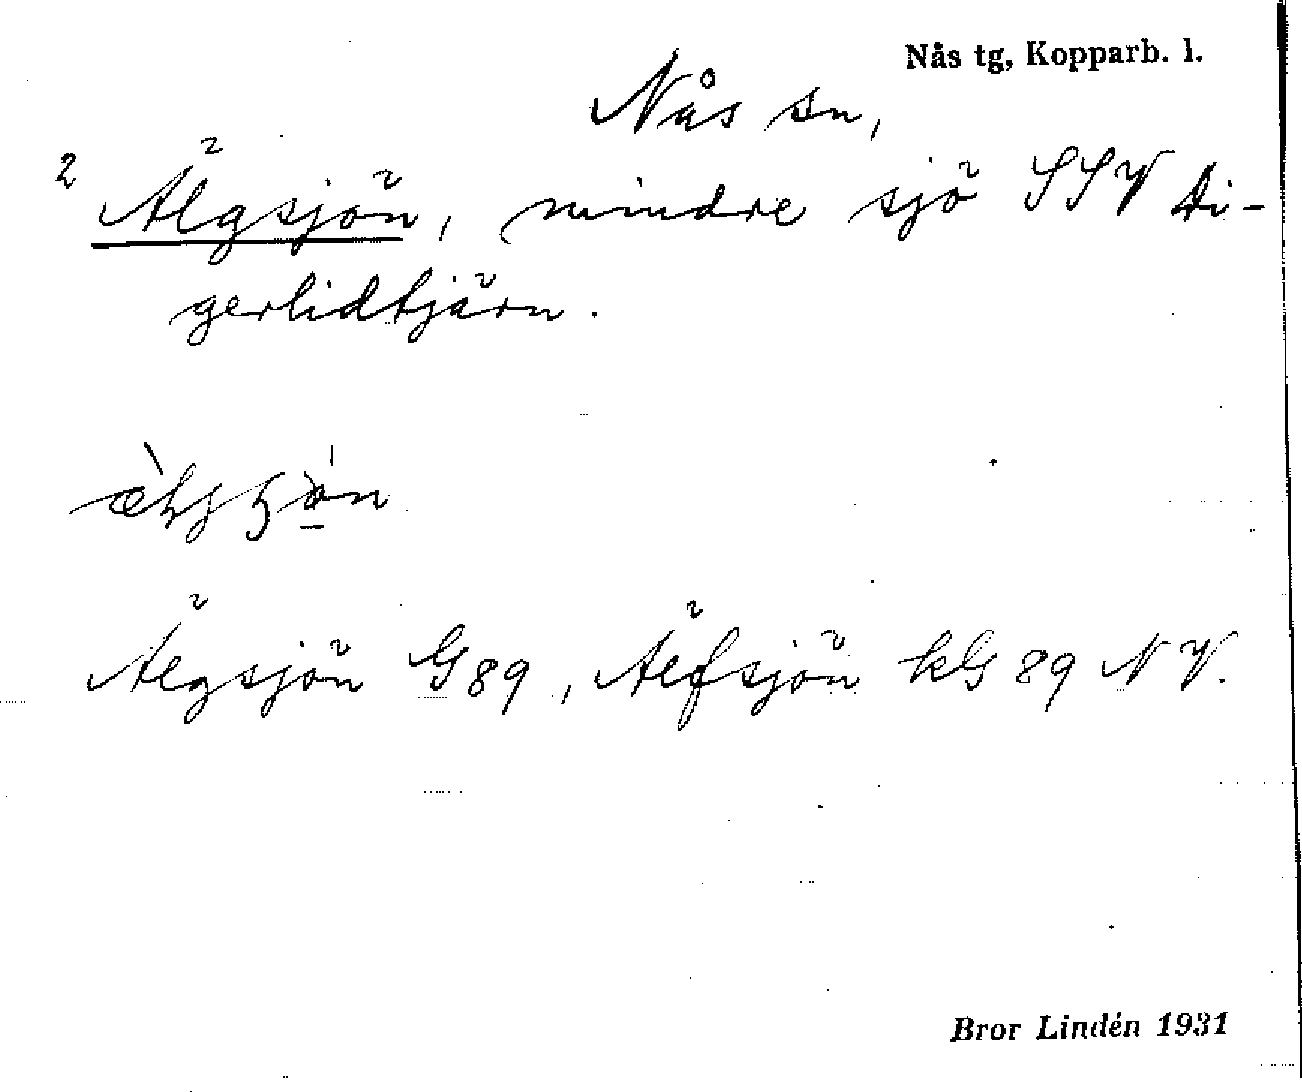 Nås tg, Kopparb. l.
Nås sn,
2 Älgsjön, mindre sjö SSV Di-
gerlidtjärn.
Älgsjön G89, Älfsjön kG 89 NV.
Bror Lindén 1931